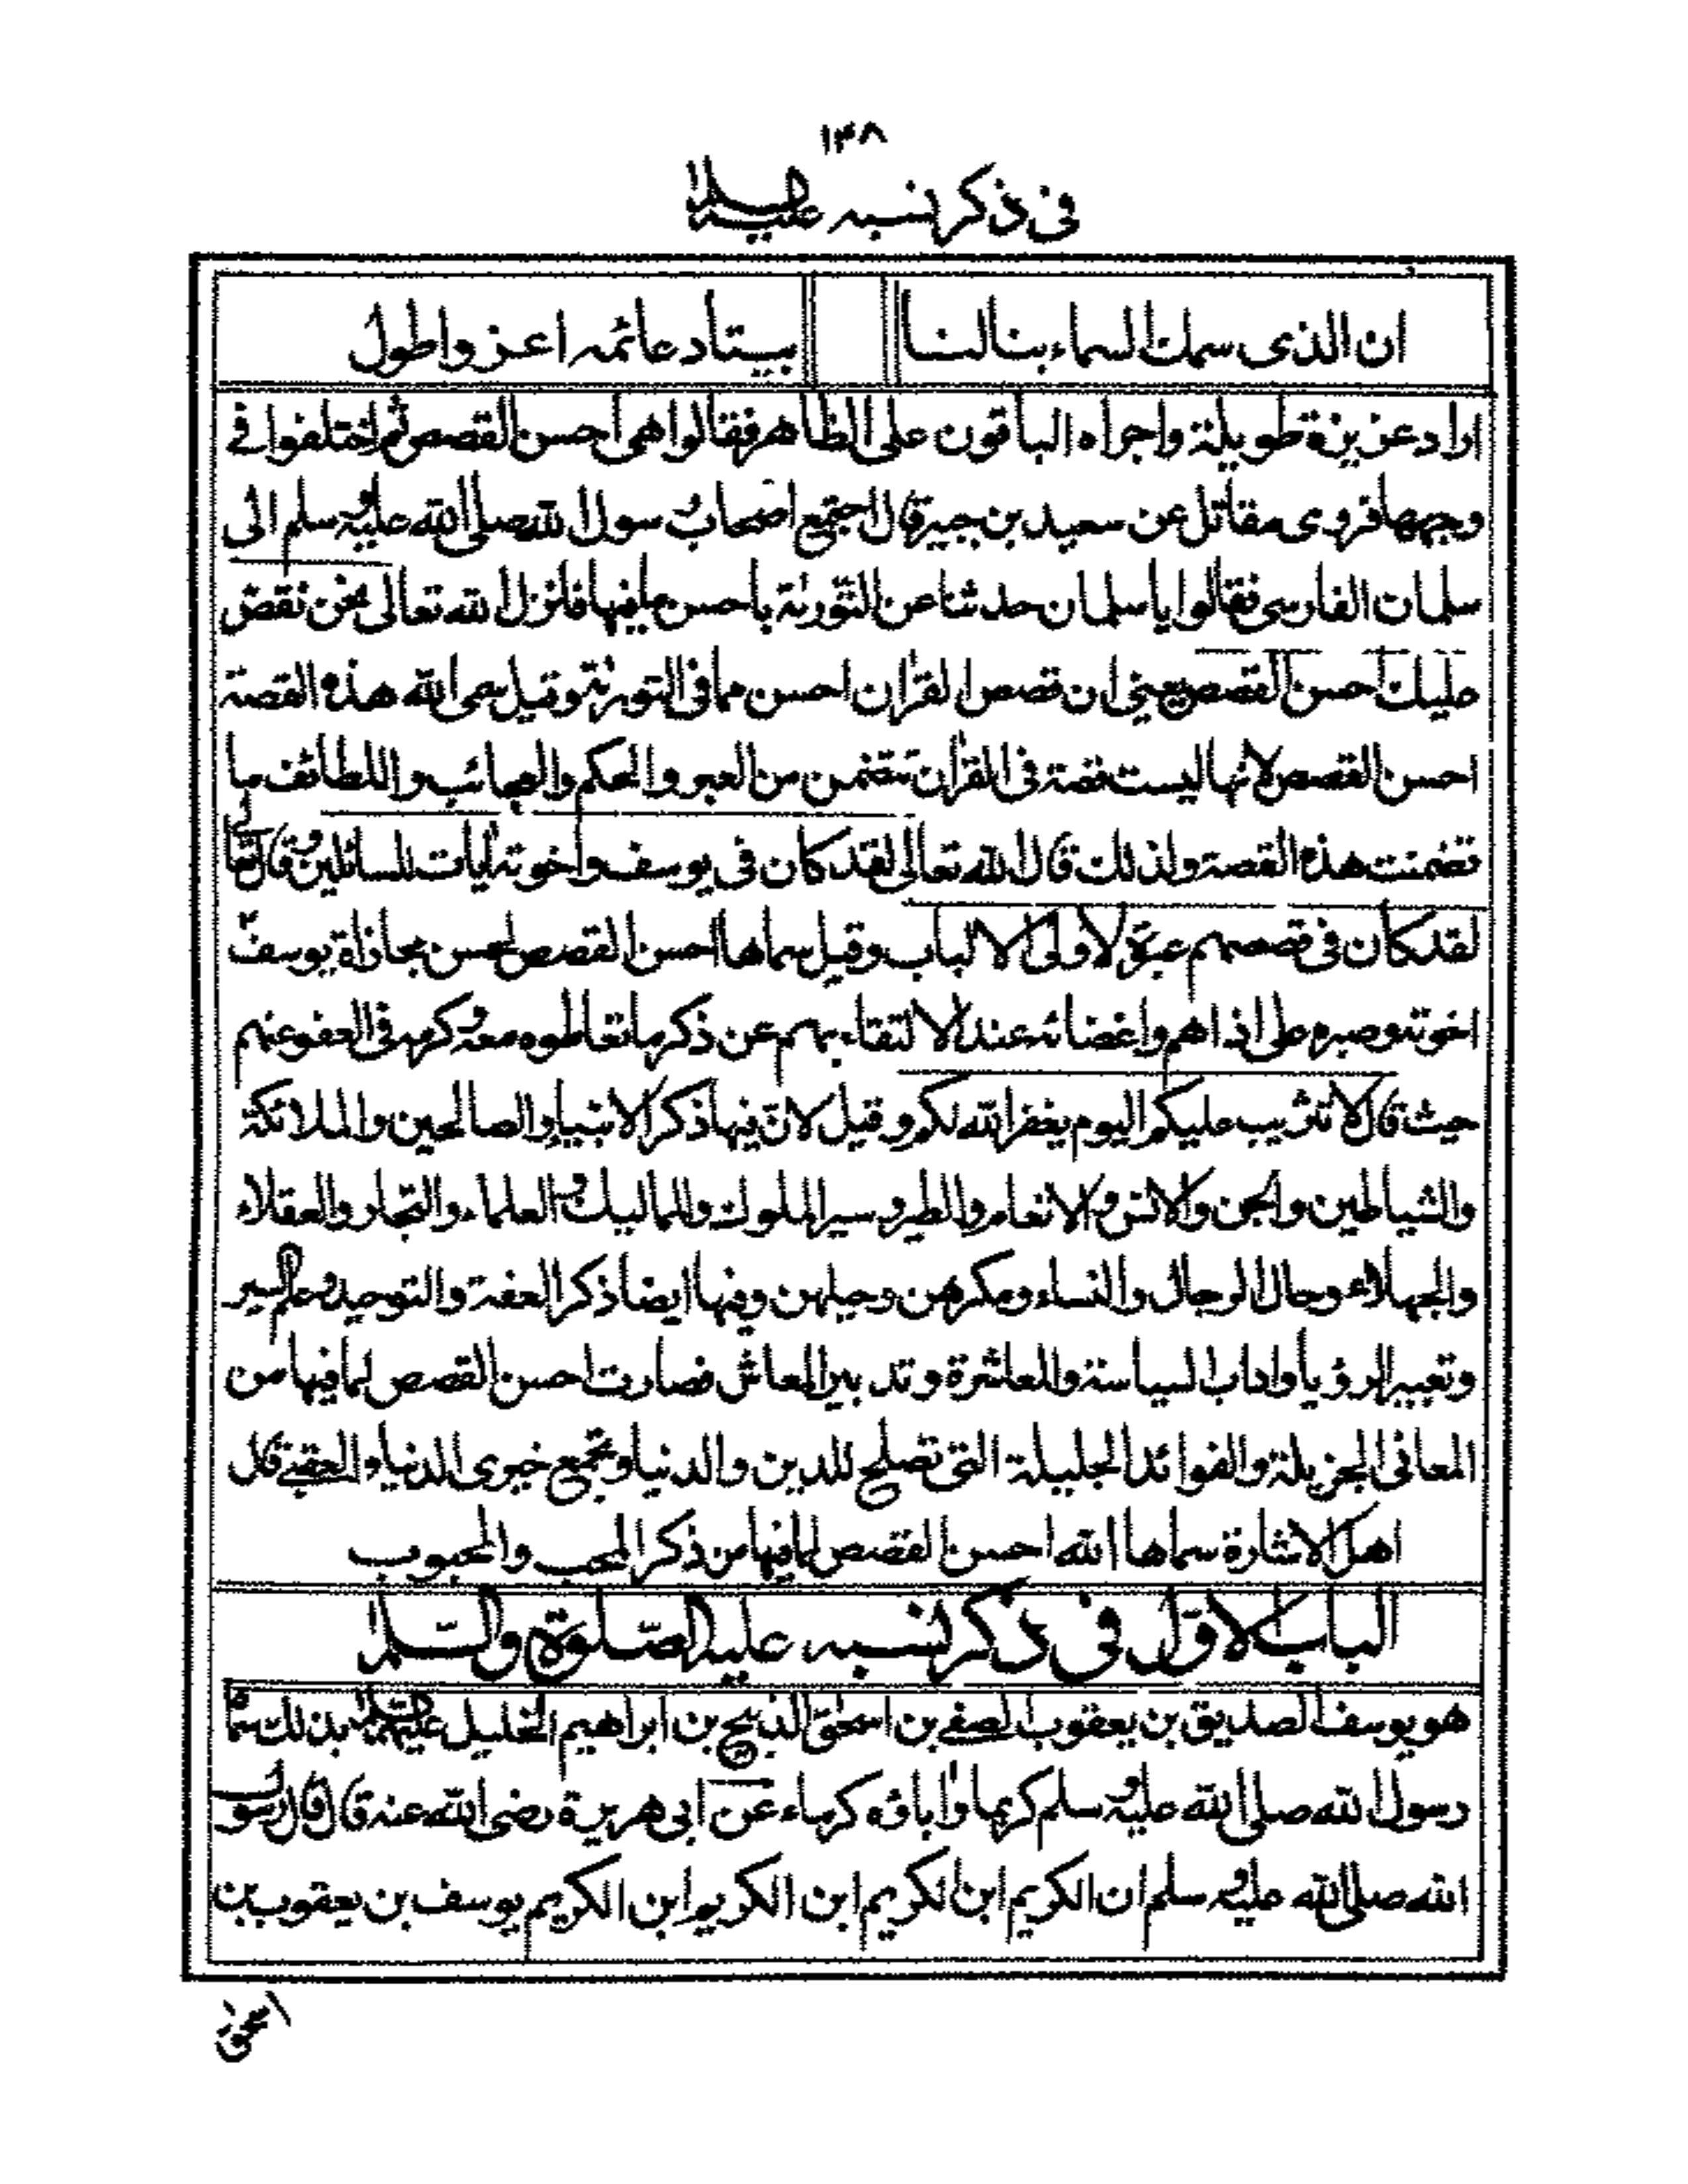 ١٣٨
فى ذكر نسبه عليه السلام
ان الذى سمك السماء بنا لنا بيتا دعائمه اعز واطول
اراد عزيزة طويلة واجراه الباقون على الظاهر فقالوا هى احسن القصص ثم اختلفوا فے
وجهها فروى مقاتل عن سعيد بن جبير قال اجتمع اصحاب رسول الله صلى الله عليه وسلم الى
سلمان الفارسى فقالوا يا سلمان حدثنا عن التورىة باحسن ما فيها فانزل الله تعالى نحن نقص
عليك احسن القصص يعنى ان قصص القراٰن احسن مما فى التورىة وقيل سمى الله هذه القصة
احسن القصص لانها ليست قصة فى القراٰن تتضمن من العبر والحكم والعجائب واللطائف ما
تضمنت هذه القصة ولذلك قال الله تعالى لقد كان فى يوسف واخوته اٰيات للسائلين وقال تعالى
لقد كان فى قصصهم عبرة لاولى الالباب وقيل سماها احسن القصص لحسن مجازاة يوسف
اخوته وصبره على اذاهم واغضائه عند الالتقاء بهم عن ذكر ما تعاطوه معه وكرمه فى العفو عنهم
حيث قال لا تثريب عليكم اليوم يغفر الله لكم وقيل لان فيها ذكر الانبياء والصالحين والملائكة
والشياطين والجن والانس والانعام والطير وسير الملوك والمماليك والعلماء والتجار والعقلاء
والجهلاء وحال الرجال والنساء ومكرهن وحيلهن وفيها ايضا ذكر العفة والتوحيد وعلم السير
وتعبير الرؤيا واداب السياسة والمعاشرة وتدبير المعاش فصارت احسن القصص لما فيها من
المعانى الجزيلة والفوائد الجليلة التى تصلح للدين والدنيا وتجمع خيرى الدنيا والعقبے قال
اهل الاشارة سماها الله احسن القصص لما فيها من ذكر المحب والمحبوب
الباب الاوّل فى ذكر نسبه عليه الصّلوة والسّلام
هو يوسف الصديق بن يعقوب الصفے بن اسحٰق الذبيح بن ابراهيم الخليل عليهم السلام بذلك سمّا
رسول الله صلى الله عليه وسلم كريما واٰباؤه كرماء عن ابى هريرة رضى الله عنه قال قال رسول
الله صلى الله عليه وسلم ان الكريم ابن الكريم ابن الكريم ابن الكريم يوسف بن يعقوب بن
اسحٰق